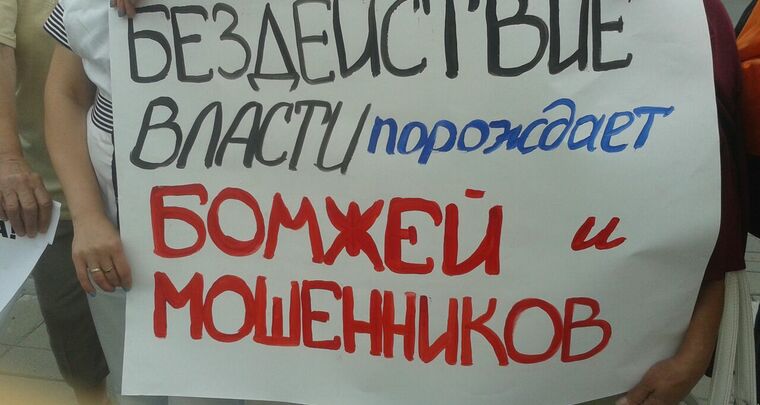 БЕЗДЕЙСТВИЕ
ВЛАСТИ порождает
БОМЖЕЙ и
МОШЕННИКОВ
А!